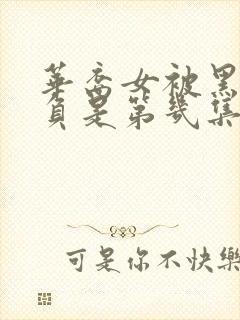 華裔女被黑
負是第幾集
可是你不快樂